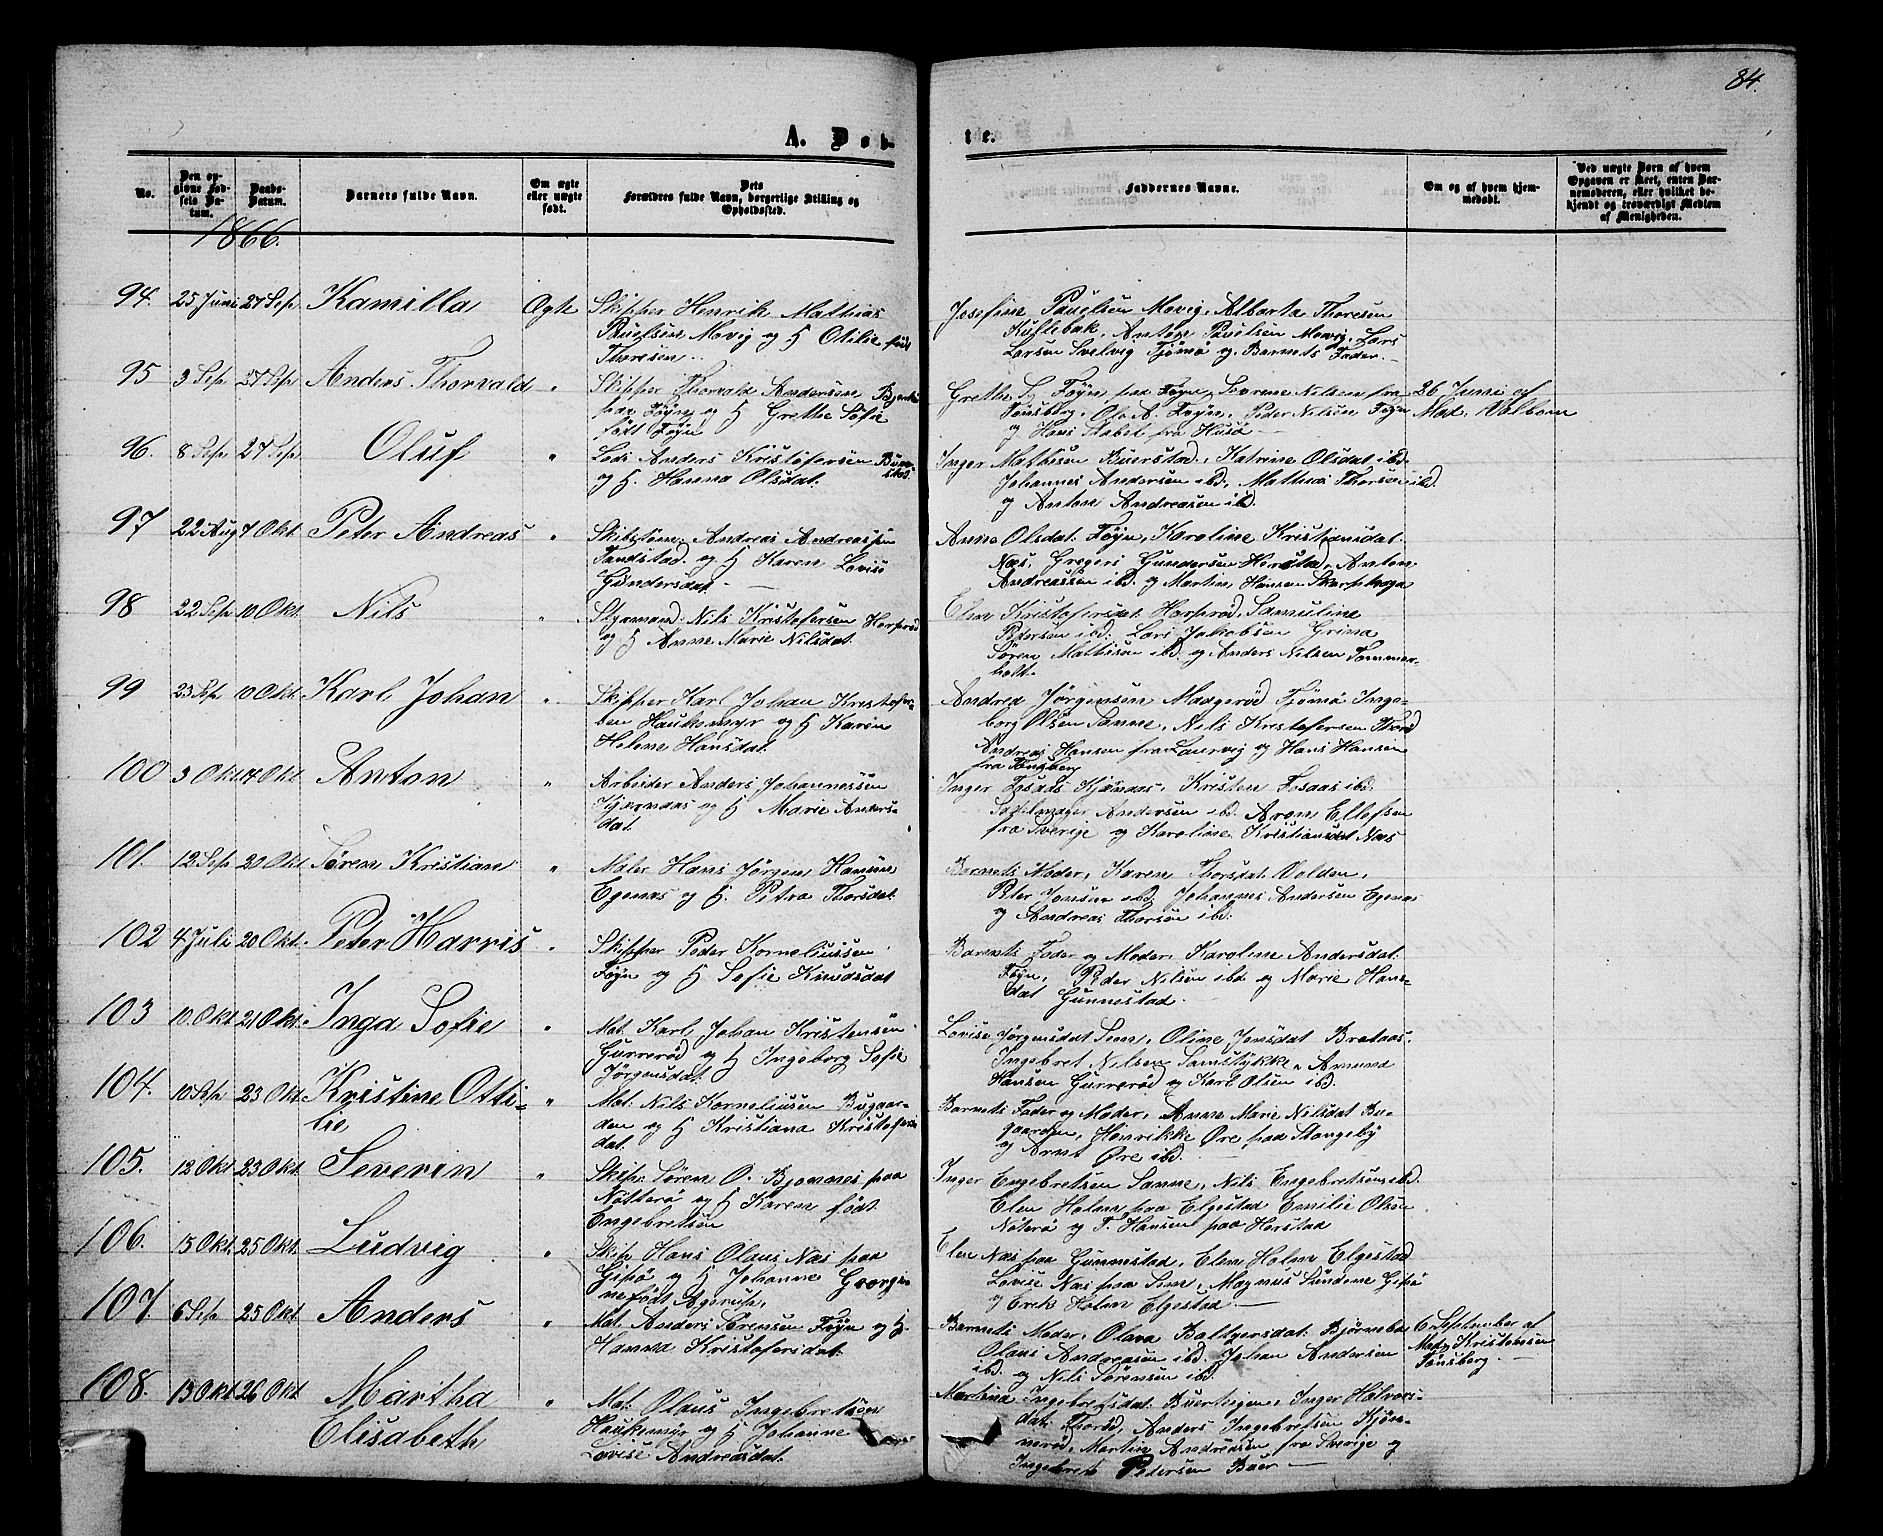 84.
A. Døb-
te.
No.
Den op-
givne Fød-
sels Da-
tum.
Daabs-
Datum.
Barnets fulde Navn.
Om ægte
eller uægte
født.
Dets
Forældres fulde Navn, borgerlige Stilling og
Opholdssted.
Faddernes Navne.
Om og af hvem hjem-
medøbt.
Ved uægte Børn af hvem
Opgaven er skeet, enten Bar-
nemoderen, eller hvilket be-
kjendt og troværdigt Medlem
af Menigheden.
1866.
94. 25 Juni 27 Sep Kamilla Ægte Skipper Henrik Mathias
Paulsen Movig og H Otilie født
Thoresen
Josefine Paulsen Movig, Albarta Thoresen
Kullebak, Anton Paulsen Movig, Lars
Larsen Svelvig Tjømø og Barnets Fader.
95 3 Sep 27 Sep Anders Thorvald " Skipper Thorvald Andersen
paa Føyn og H Grethe Sofie
født Føyn
Grethe S. Føyn paa Føyn, Severine Nilsen fra
Tønsberg, Ol. A. Føyn, Peder Nilsen Føyn
og Hans Stabel fra Husø
26 Juni af
Mad. Valborn
96. 8 Sep 27 Sep Oluf " Lods Anders Kristofersen Buer-
stad
og H. Hanna Olsdat.
Inger Mathisen Buerstad, Katrine Olsdat ibd.
Johannes Andersen ibd, Mathias Thorsen ibd
og Anton Andreasen ibd.
97 22 Aug 7 Okt Peter Andreas " Skibstøm. Andreas Andreassen
Tandstad og H Karen Lovise
Gundersdat.
Anne Olsdat Føyn, Karoline Kristiansdat.
Næs, Gregers Gundersen Herstad, Anton
Andreassen ibd og Martin Hansen Skarphaga
98 22 Sep 10 Okt Nils " Styrmand Nils Kristofersen Harperød
og H Anne Marie Nilsdat.
Elen Kristofersdat Harperød, Samuline
Pedersen ibd: Lars Jakobsen Grima
Søren Mathisen ibd og Anders Nilsen Tommer-
holt.
99 23 Sep 10 Okt Karl Johan " Skipper Karl Johan Kristofer-
sen Haukemyr og H Karen
Helene Hansdat.
Andrea Jørgensen Magerød Tjømø Inge-
borg Olsen Sanne, Nils Kristofersen Thorød
Andreas Hansen fra Laurvig og Hans Hansen
fra Tønsberg
100 3 Okt 14 Okt Anton " Arbeider Anders Johannessen
Kjærnaas og H Marie Anders-
dat
Inger Fosaas Kjærnaas, Kristen Fosaas ibd.
Sadelmager Andersen ibd. Aron Ellefsen
fra Sverige og Karoline Kristiansdat Næs
101. 12 Sep 20 Okt Søren Kristian " Maler Hans Jørgen Hansen
Egenæs og H. Petra Thorsdat
Barnets Moder, Karen Thorsdat Volden,
Peter Jonsen ibd. Johannes Andersen Egenæs
og Andreas Thorsøn ibd:
102 4 Juli 20 Okt. Peter Harris " Skipper Peder Korneliussen
Føyn og H Sofie Knudsdat
Barnets Fader og Moder, Karoline Andersdat.
Føyn, Peder Nilsen ibd og Marie Hans-
dat Gunnestad.
103 10 Okt 21 Okt. Inga Sofie " Mat. Karl Johan Kristensen
Gurrerød og H Ingeborg Sofie
Jørgensdat.
Lovise Jørgensdat Sem, Oline Jensdat Brataas.
Ingebret Nilsen Samstykke, Amma
Hansen Gurrerød og Karl Olsen ibd.
104. 10 Sep 23 Okt Kristine Otti-
lie " Mat. Nils Korneliusen Bugaar-
den og H Kristiana Kristofers
dat.
Barnets Fader og Moder, Anne Marie Nilsdat Bu-
gaarden, Henrikke Øre paa Stangeby
og Arnt Øre ibd.
105. 12 Okt 23 Okt. Severin " Skip. Søren O. Bjønnes paa
Nøtterø og H Karen født
Engebretsen
Inger Engebretsen Sanne, Nils Engebretsen ibd.
Elen Holm paa Elgestad Emilie Olsen
Nøterø og T. Hansen paa Herstad
106. 15 Okt. 25 Okt. Ludvig " Skip. Hans Olaus Næs paa
Gipø og H Johanne Georgi-
ne født Agerup.
Elen Næs paa Gunnestad, Elen Holm Elgestad
Lovise Næs paa Sem, Magnus Sundene Gipø
og Erik Holm Elgestad
107. 6 Sep 25 Okt Anders " Mat. Anders Sørensen Føyn og H.
Hanna Kristofersdat.
Barnets Moder, Olava Baltzersdat. Bjørnebo
Olaus Andreasen ibd. Johan Andersen
ibd. og Nils Sørensen ibd.
6 September af
Mad Kristensen
Tønsberg.
108. 13 Okt 26 Okt Martha
Elisabeth " Mat. Olaus Ingebretsen
Haukemyr og H Johanne
Lovise Andreasdat.
Martina Ingebretsdat. Buertingen, Inger Halvors-
dat. Thorød, Anders Ingebretsen Kjøn-
nerød, Martin Andreasen fra Sverige og
Ingebret Pedersen Buer